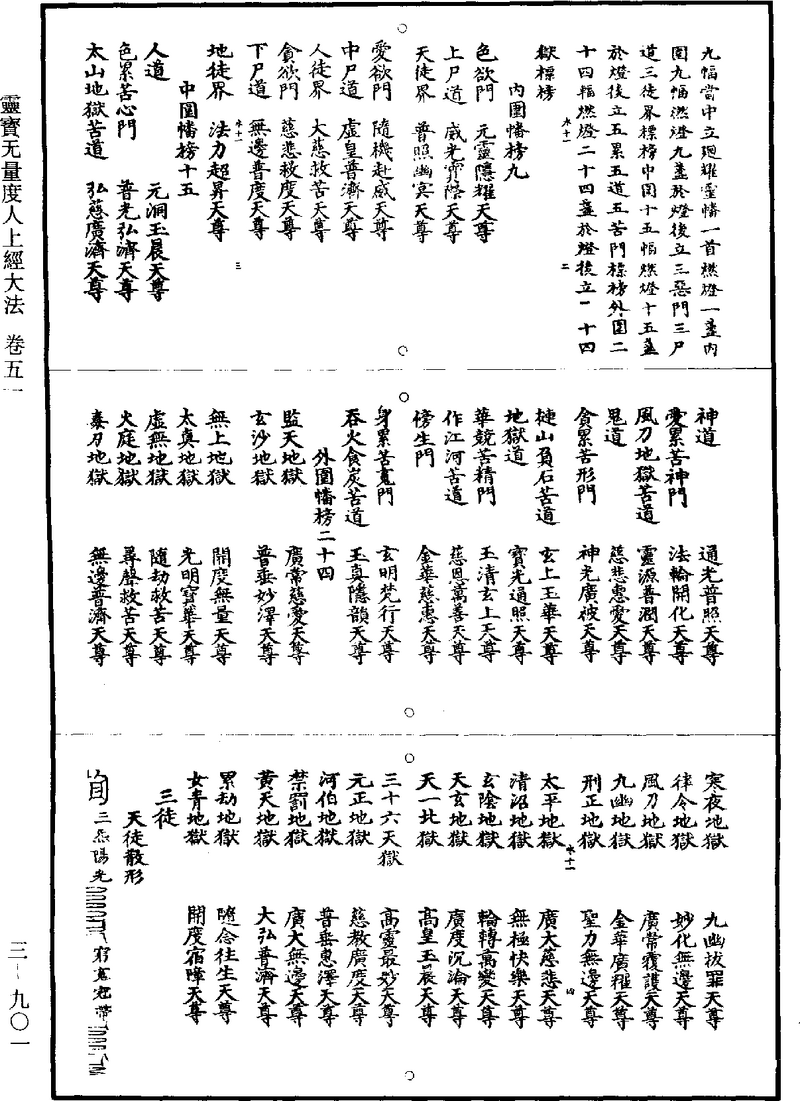 靈寶无量度人上經大法 卷五一
三一九〇一
九幅當中立迴耀靈幡一首燃燈一盞內
圍九幅燃燈九盞於燈後立三惡門三尸
道三徒界標榜中圍十五幅燃燈十五盞
於燈後立五累五道五苦門標榜外圍二
十四幅燃燈二十四盞於燈後立二十四
獄標榜
水十一 二
內圍幡榜九
色欲門 元靈隱耀天尊
上尸道 威光霄際天尊
天徒界 普照幽冥天尊
愛欲門 隨機赴感天尊
中尸道 虛皇普濟天尊
人徒界 大慈救苦天尊
貪欲門 慈悲救度天尊
下尸道 無邊普度天尊
水十一 三
地徒界 法力超昇天尊
中圍幡榜十五
人道 元洞玉晨天尊
色累苦心門 普光弘濟天尊
太山地獄苦道 弘慈廣濟天尊
神道 通光普照天尊
愛累苦神門 法輪開化天尊
風刀地獄苦道 靈源普潤天尊
鬼道 慈悲惠愛天尊
貪累苦形門 神光廣被天尊
揵山負石苦道 玄上玉華天尊
地獄道 寶光通照天尊
華競苦精門 玉清玄上天尊
作江河苦道 慈恩萬善天尊
傍生門 金華慈惠天尊
身累苦魂門 玄明梵行天尊
吞火食炭苦道 玉真隱韻天尊
外圍幡榜二十四
監天地獄 廣常慈愛天尊
玄沙地獄 普垂妙澤天尊
無上地獄 開度無量天尊
太真地獄 光明寶華天尊
虛無地獄 隨劫救苦天尊
火庭地獄 尋聲救苦天尊
毒刃地獄 無邊普濟天尊
寒夜地獄 九幽拔罪天尊
律令地獄 妙化無邊天尊
風刀地獄 廣常覆護天尊
九幽地獄 金華廣耀天尊
刑正地獄 聖力無邊天尊
水十一 四
太平地獄 廣大慈悲天尊
清沼地獄 無極快樂天尊
玄陰地獄 輪轉萬變天尊
天玄地獄 廣度沉淪天尊
天一北獄 高皇玉晨天尊
三十六天獄 高靈最妙天尊
元正地獄 慈教廣度天尊
河伯地獄 普垂惠澤天尊
禁罰地獄 廣大無邊天尊
黃天地獄 大弘普濟天尊
累劫地獄 隨念往生天尊
女青地獄 開度宿障天尊
三徒
天徒散形
三炁陽光